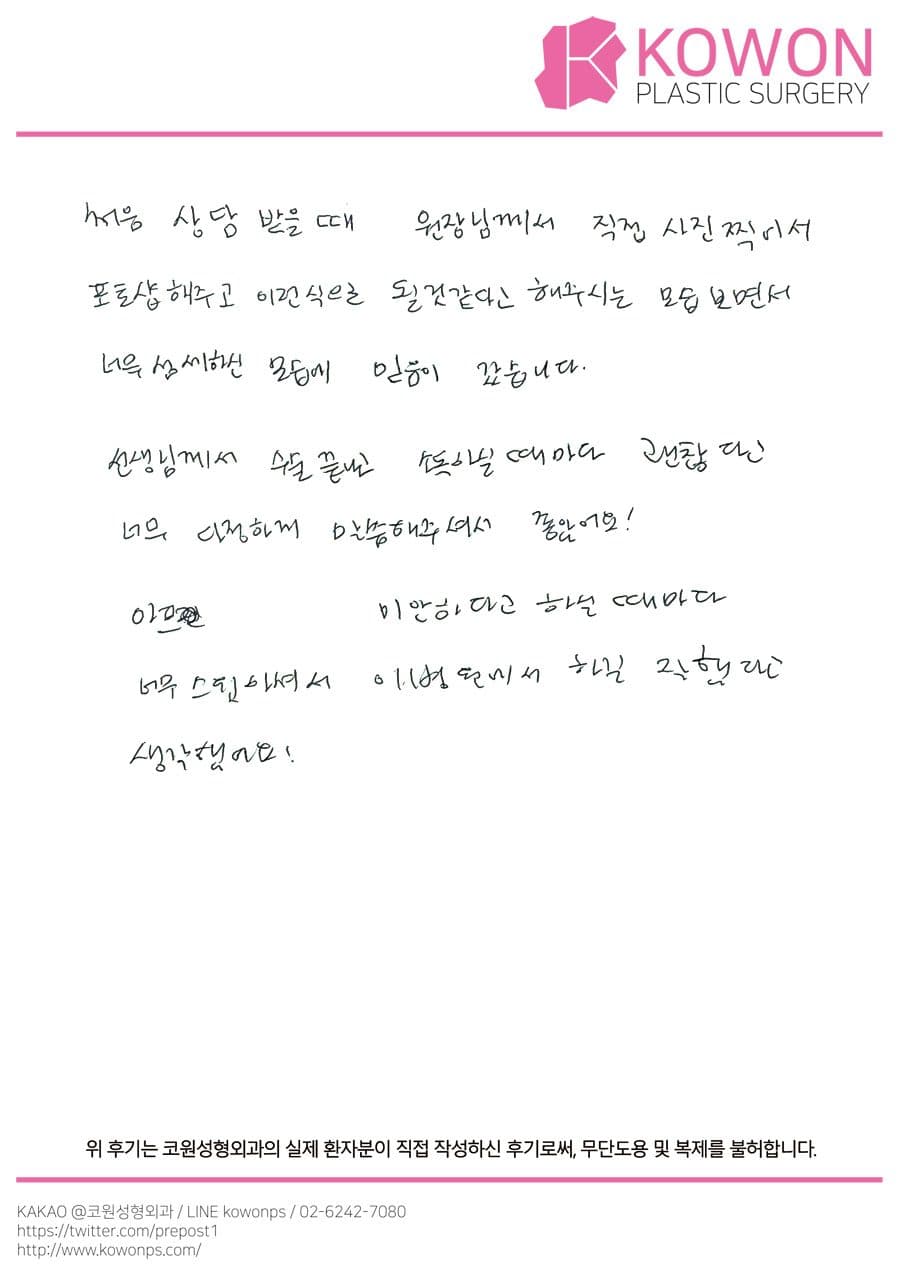 KOWON
PLASTIC SURGERY
처음 상담 받을 때 원장님께서 직접 사진 찍어서
포토샵해주고 이런식으로 될것같다고 해주시는 모습 보면서
너무 섬세하신 모습에 믿음이 갔습니다.
선생님께서 수술 끝나고 소독하실 때마다 괜찮다고
너무 다정하게 말씀해주셔서 좋았어요!
미안하다고 하실 때마다
너무 스윗하셔서 이병원에서 하길 잘했다고
생각했어요!
위 후기는 코원성형외과의 실제 환자분이 직접 작성하신 후기로써, 무단도용 및 복제를 불허합니다.
KAKAO @코원성형외과 / LINE kowonps / 02-6242-7080
https://twitter.com/prepost1
http://www.kowonps.com/